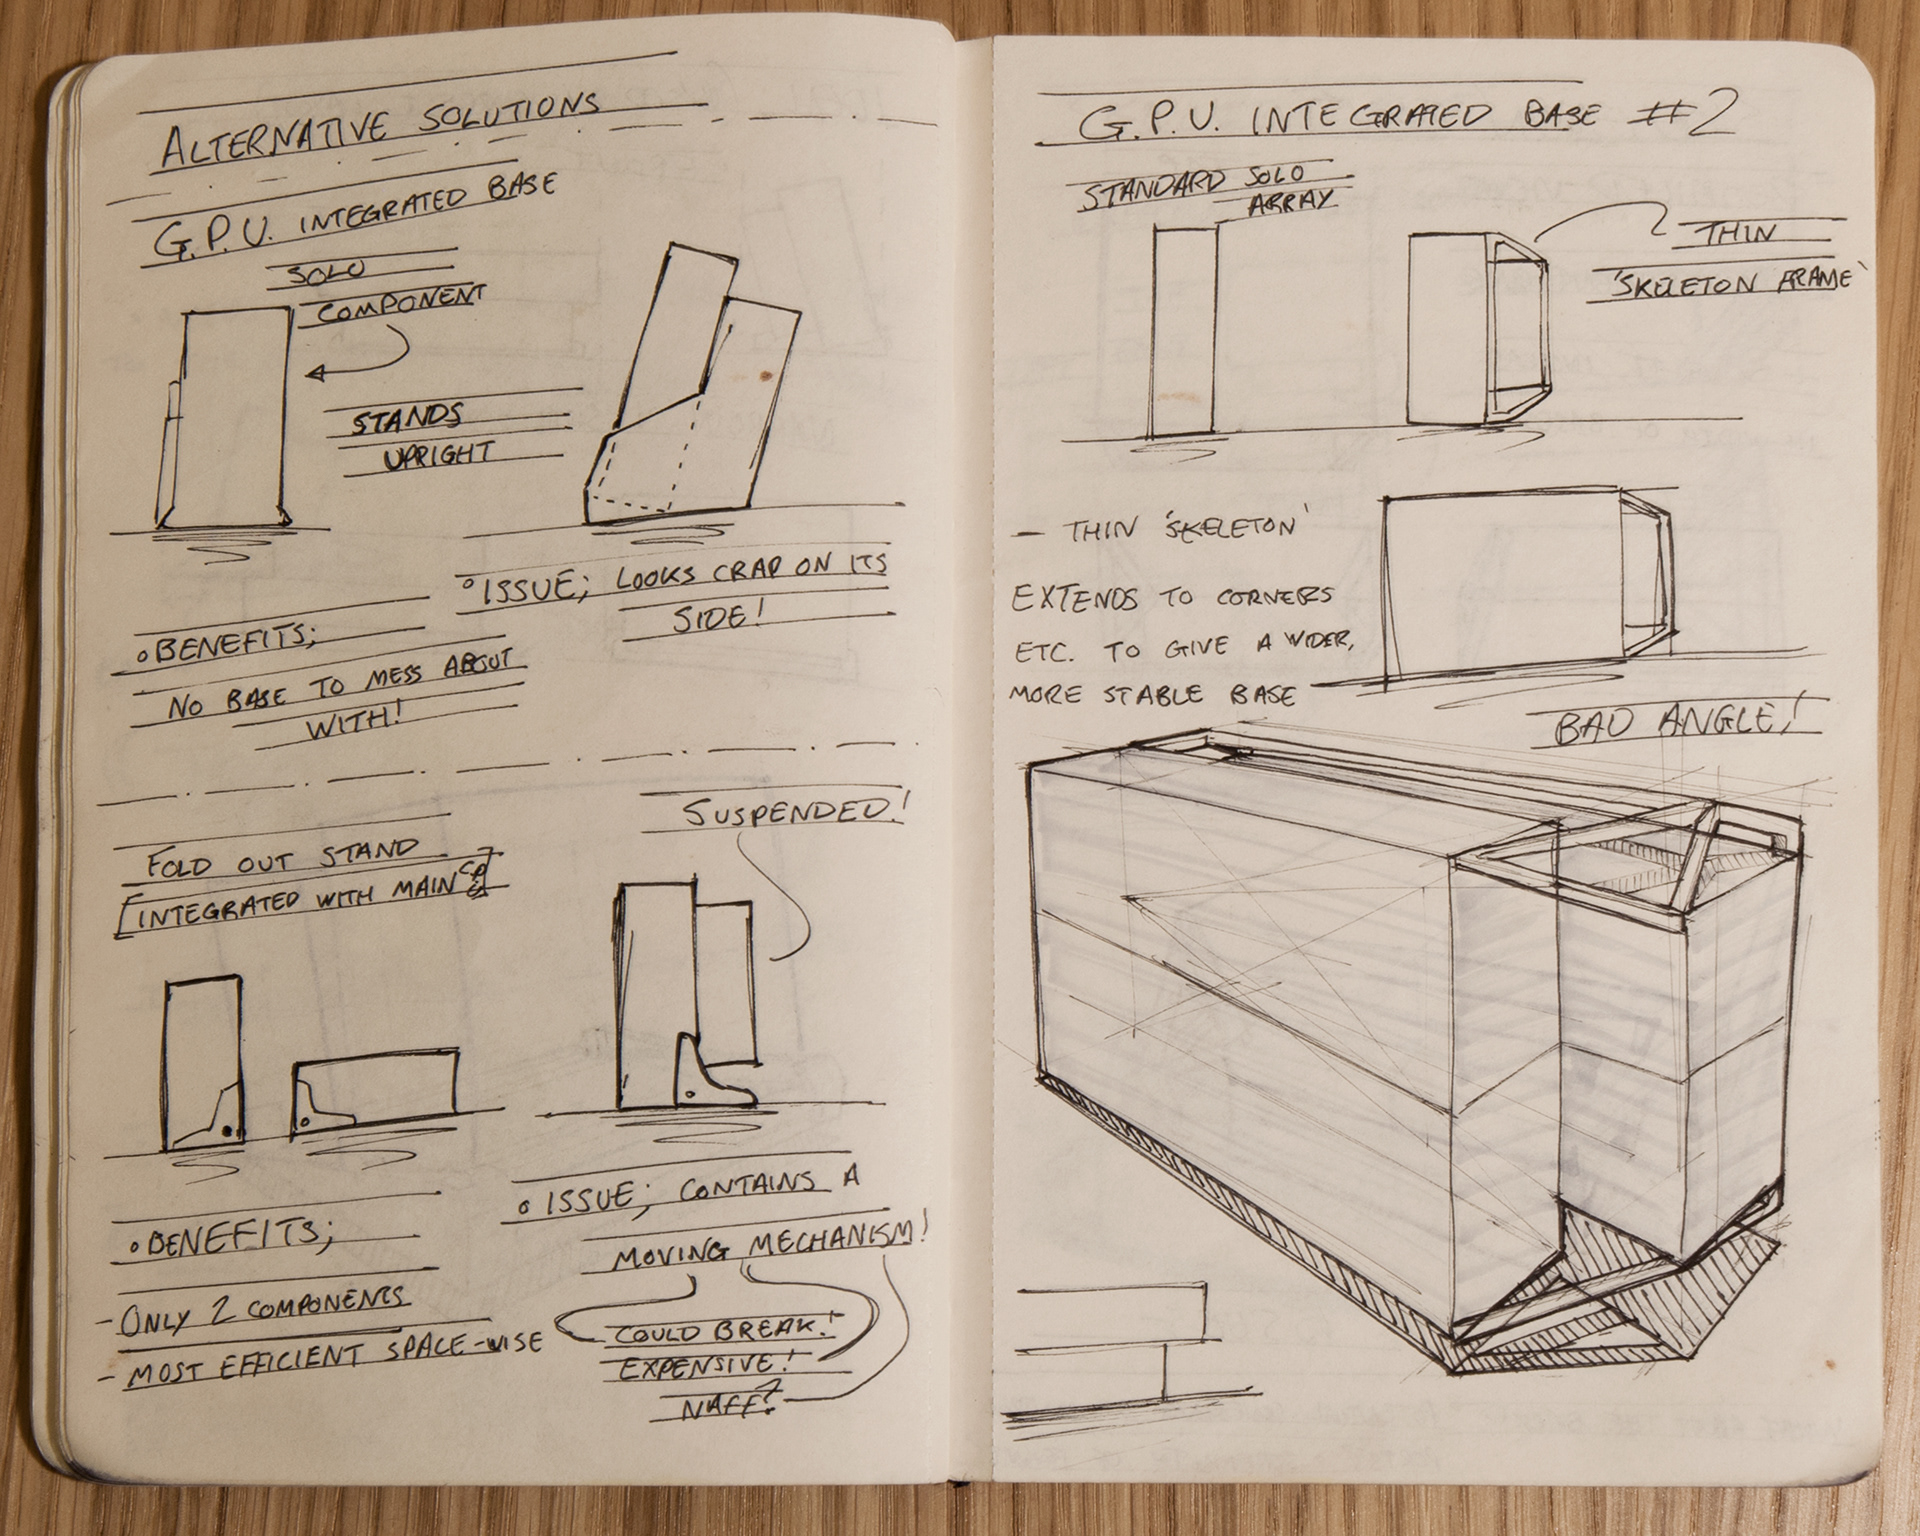 ALTERNATIVE SOLUTIONS
G.P.U. INTEGRATED BASE
SOLO
COMPONENT
STANDS
UPRIGHT
° ISSUE; LOOKS CRAP ON ITS
SIDE!
° BENEFITS;
NO BASE TO MESS ABOUT
WITH!
SUSPENDED!
FOLD OUT STAND
[INTEGRATED WITH MAIN
° BENEFITS;
- ONLY 2 COMPONENTS
- MOST EFFICIENT SPACE-WISE
° ISSUE; CONTAINS A
MOVING MECHANISM!
COULD BREAK!
EXPENSIVE!
NAFF?
G.P.U. INTEGRATED BASE #2
STANDARD SOLO
ARRAY
THIN
'SKELETON FRAME'
- THIN 'SKELETON'
EXTENDS TO CORNERS
ETC. TO GIVE A WIDER,
MORE STABLE BASE
BAD ANGLE!